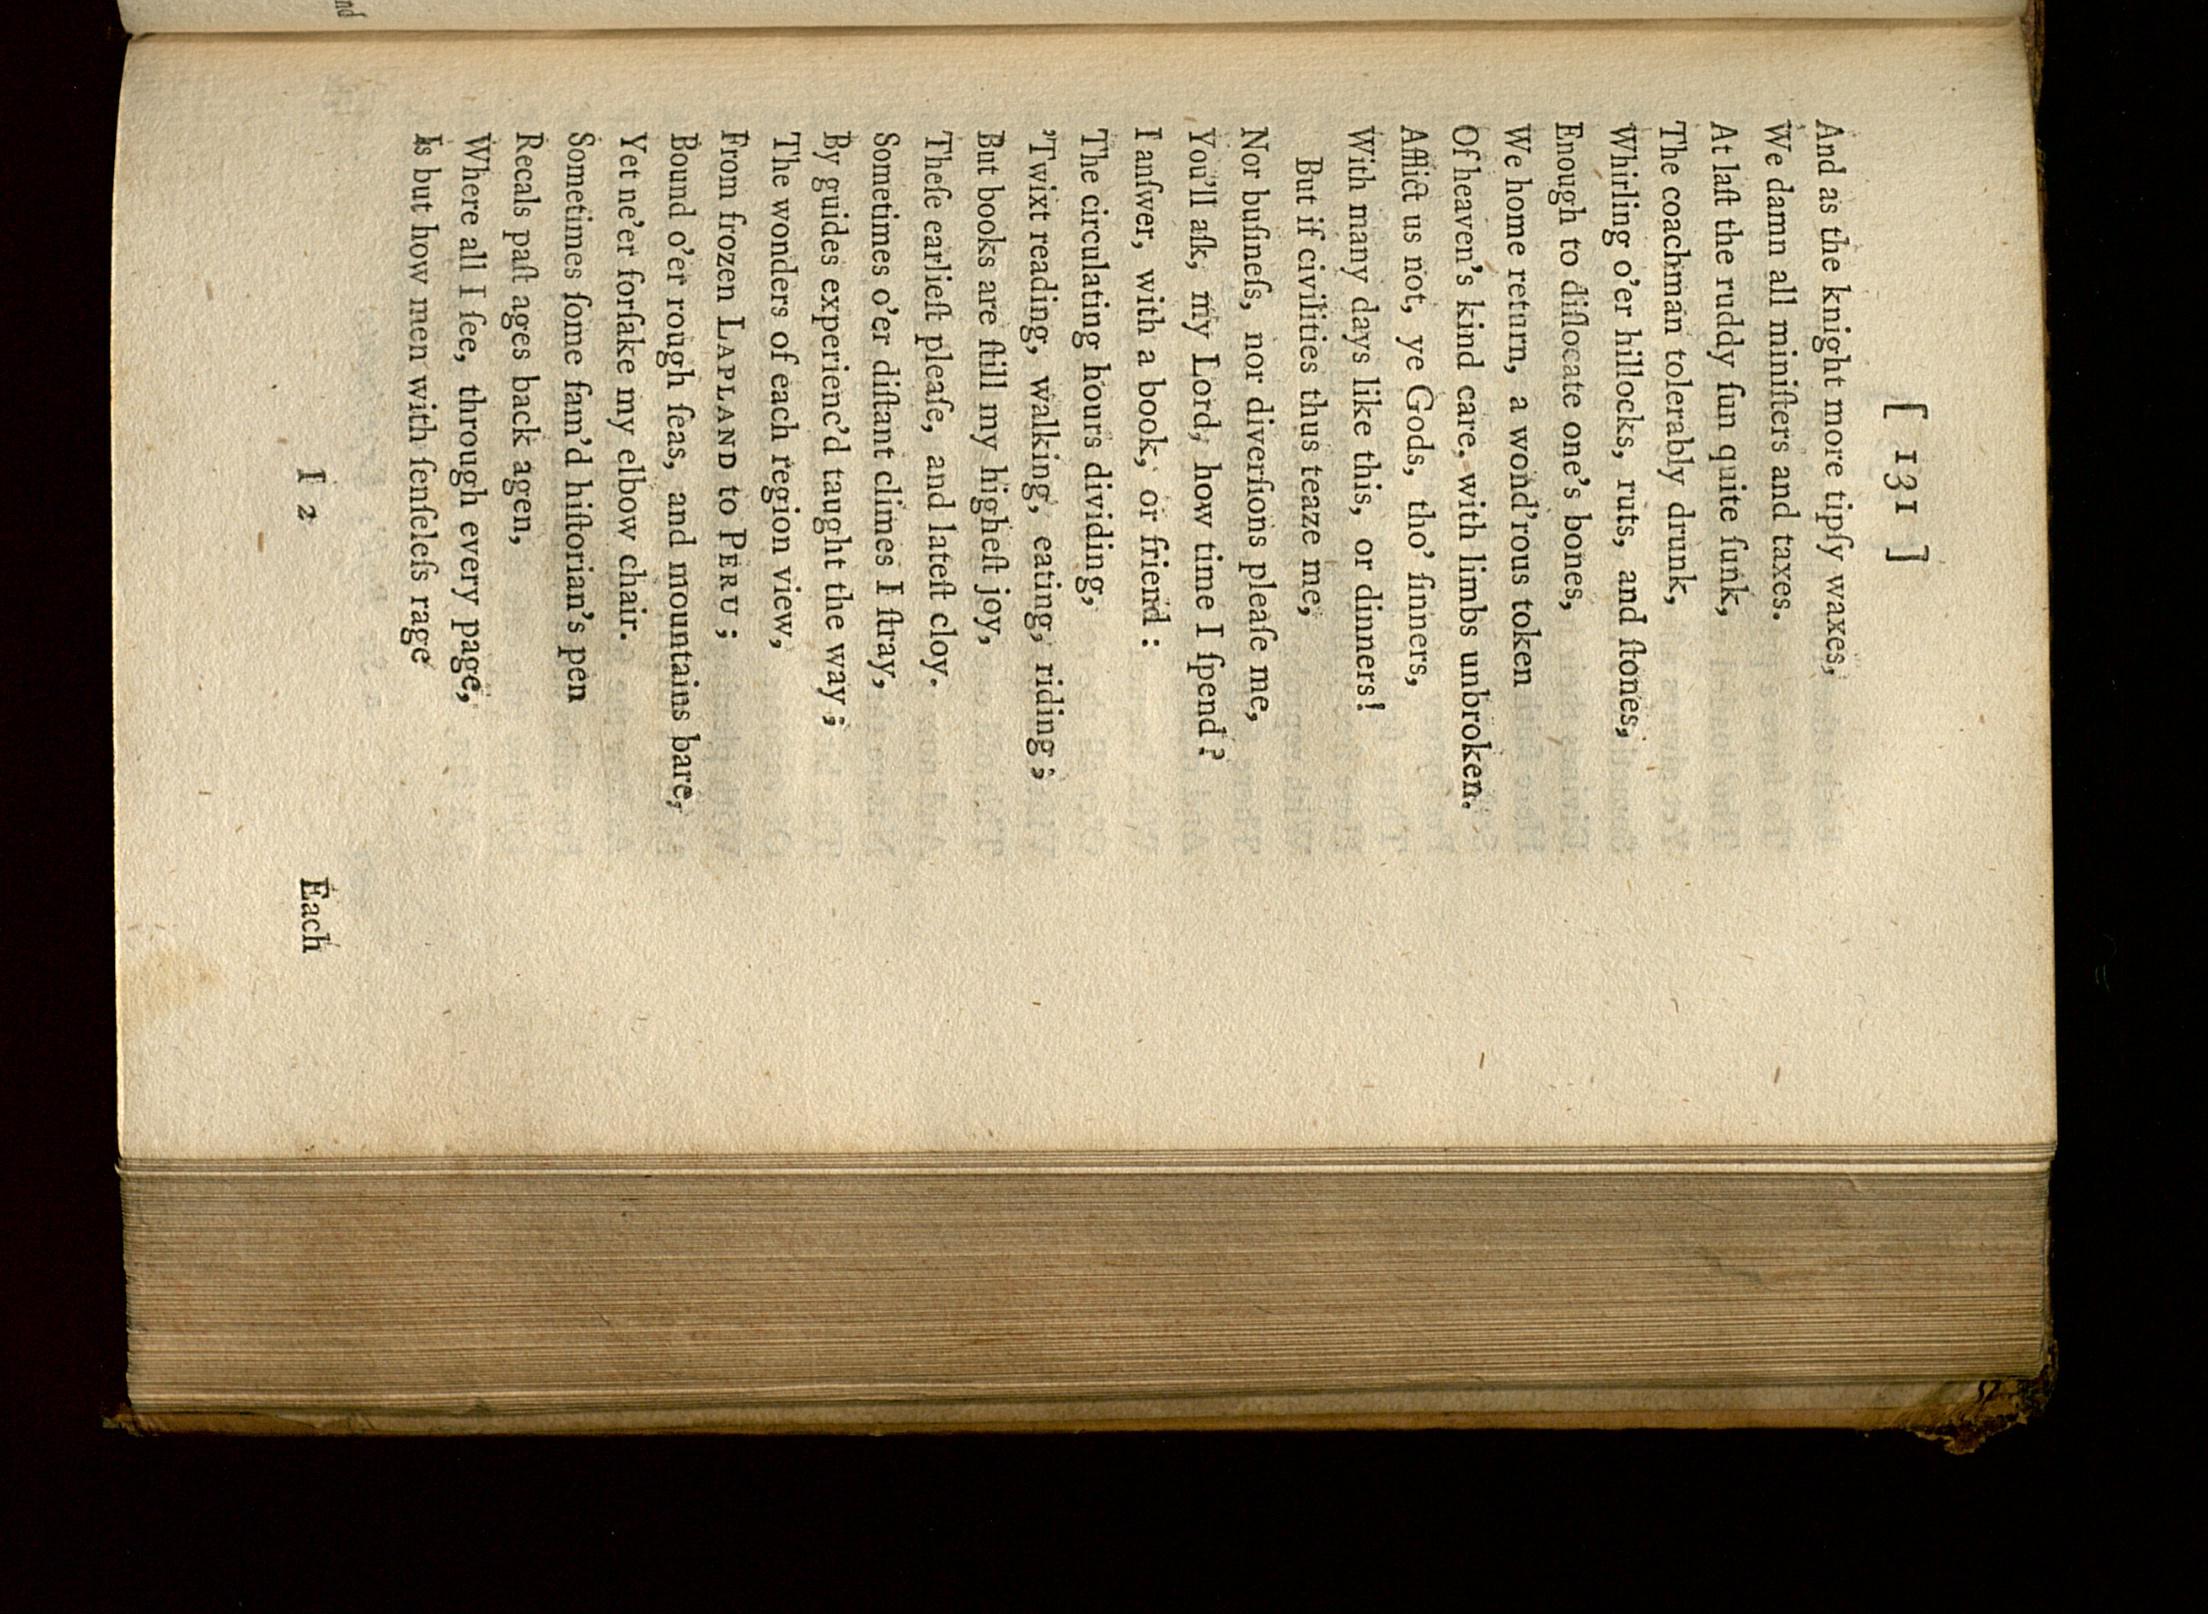 [ 131 ]
And as the knight more tipſy waxes,
We damn all miniſters and taxes.
At laſt the ruddy ſun quite ſunk,
The coachman tolerably drunk,
Whirling o'er hillocks, ruts, and ſtones,
Enough to diſlocate one's bones,
We home return, a wond'rous token
Of heaven's kind care, with limbs unbroken.
Afflict us not, ye Gods, tho' ſinners,
With many days like this, or dinners!
But if civilities thus teaze me,
Nor buſineſs, nor diverſions pleaſe me,
You'll aſk, my Lord, how time I ſpend?
I anſwer, with a book, or friend:
The circulating hours dividing,
'Twixt reading, walking, eating, riding;
But books are ſtill my higheſt joy,
Theſe earlieſt pleaſe, and lateſt cloy.
Sometimes o'er diſtant climes I ſtray,
By guides experienc'd taught the way;
The wonders of each region view,
From frozen LAPLAND to PERU;
Bound o'er rough ſeas, and mountains bare,
Yet ne'er forſake my elbow chair.
Sometimes ſome fam'd hiſtorian's pen
Recals paſt ages back agen,
Where all I ſee, through every page,
Is but how men with ſenſeleſs rage
I 2
Each